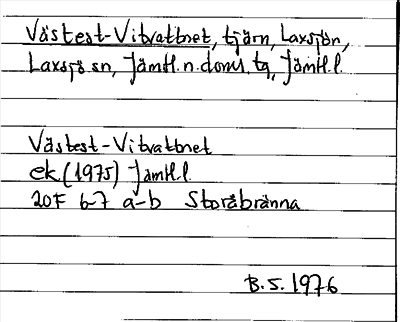 Västest-Vitvattnet, tjärn, Laxsjön,
Laxsjö sn, Jämtl.n.doms.tg, Jämtl.l.
Västest-Vitvattnet
ek (1975) Jämtl.l.
20F 6-7 a-b Storåbränna
B.S. 1976